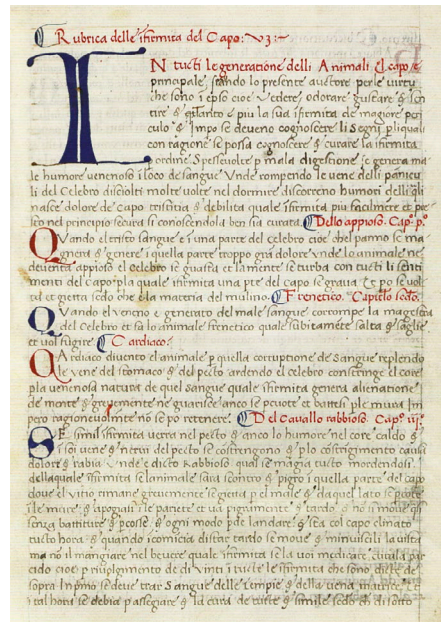 Rubrica delle ifirmita del Capo:
IN tutti le generatione delli Animali el capo e
principale stando lo presente auctore per le virtu
che sono i epso cioe Vedere odorare gustare & sen
tire & quanto e piu la sua ifirmita de magiore peri
culo & Impo se deveno cognoscere li Segni pliquali
con ragione se possa cognoscere & curare la ifirmita
ordine Spessevolte p mala digestione se genera ma
le humore venenoso i loco de sangue Unde rompendo le vene delli panicu
li del Celebro disciolti molte volte nel dormire discorreno humori delli qli
nasce dolore de Capo tristitia & debilita quale ifirmita piu facilmete et pre
sto nel principio secura si conoscendola ben sia curata Dello appioso. Capº pº
QUando el tristo sangue e i una parte del celebro cioe nel panno se ma
gnera & genere i quella parte troppo gra dolore Unde lo animale ne
deventa appioso el celebro se guasta et la mente se turba con tutti li senti
menti del Capo pla quale ifirmita una pte del capo se grava Et po se vol
ta et gietta secdo che ela materia del mulino. Frenetico. Capitolo secdo.
QUando el veneno e generato del male sangue corrompe la magesta
del Celebro et fa lo animale frenetico quale subitamete salta & saglie
et vol fugire Cardiaco.
CArdiaco diventa el animale p quella corruptione de Sangue replendo
le vene del stomaco & del pecto ardendo el celebro constringe el core
pla venenosa natura de quel sangue quale ifirmita genera alienatione
de mente & gravemente ne guarisce anco se pcuote et battesi ple mura Im
pero ragionevolmte no se po retenere. Del Cavallo rabbioso. Capº iijº
SE simil ifirmita verra nel pecto & anco lo humore nel core caldo &
i soi vene & nervi del pecto se costrengono & plo costrengimento causa
dolore & rabia Unde e dicto Rabbioso qual se magia tucto mordendosi
dellaquale ifirmita se lanimale sara scontro & pigro i quella parte del capo
dove el vitio timane grevemente se gietta p el male & da quel lato se pcote
i le mure & apogiase i le pariete et va pigramente & tardo & no se move qsi
senza battiture & pcosse & ogni modo p de landare & sta col capo clinato
tutto hora & quando icomicia discar tardo se move & minuiscili la vista
ma no il mangiare nel bevere quale ifirmita se la voi medicare cuvila par
cido cioe p rivolgimento de dividi i tutte le ifirmita che sono dicte de
sopra In pmo se deve trar Sangue delle tempie & della vena matrice Et
tal hora se debia passegare & la cura de tutte & simile secdo che di sotto